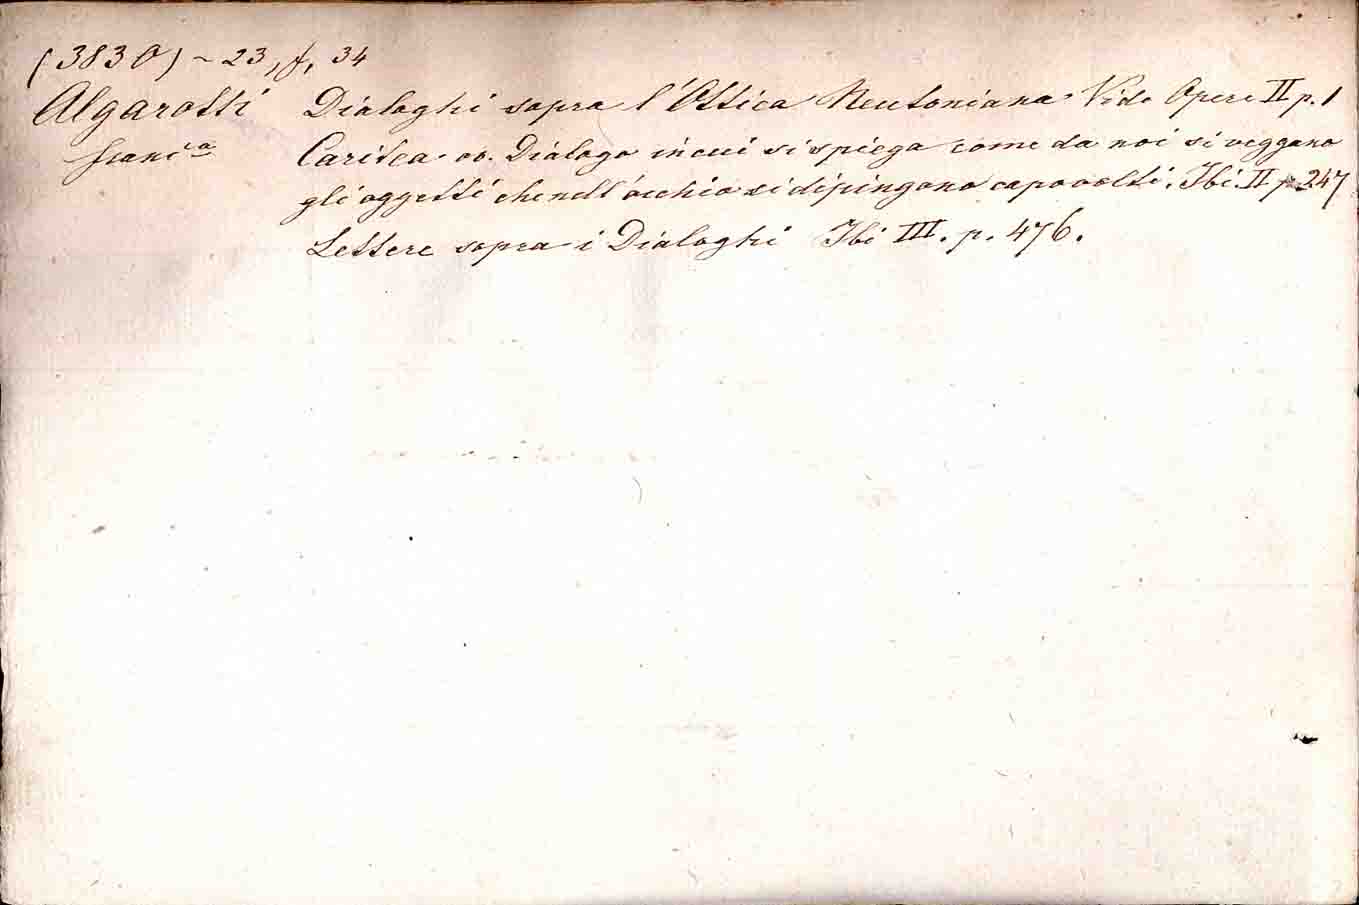 (3830) ~ 23, f, 34
Algarotti Dialoghi sopra l'Ottica Neutoniana Vide Opere II p. 1
Caritea ov. Dialogo in cui si spiega come da noi si veggano
gli oggetti che nell'occhio si dipingono capovolti. Ibi. II p. 247
Lettere sopra i Dialoghi Ibi III. p. 476.